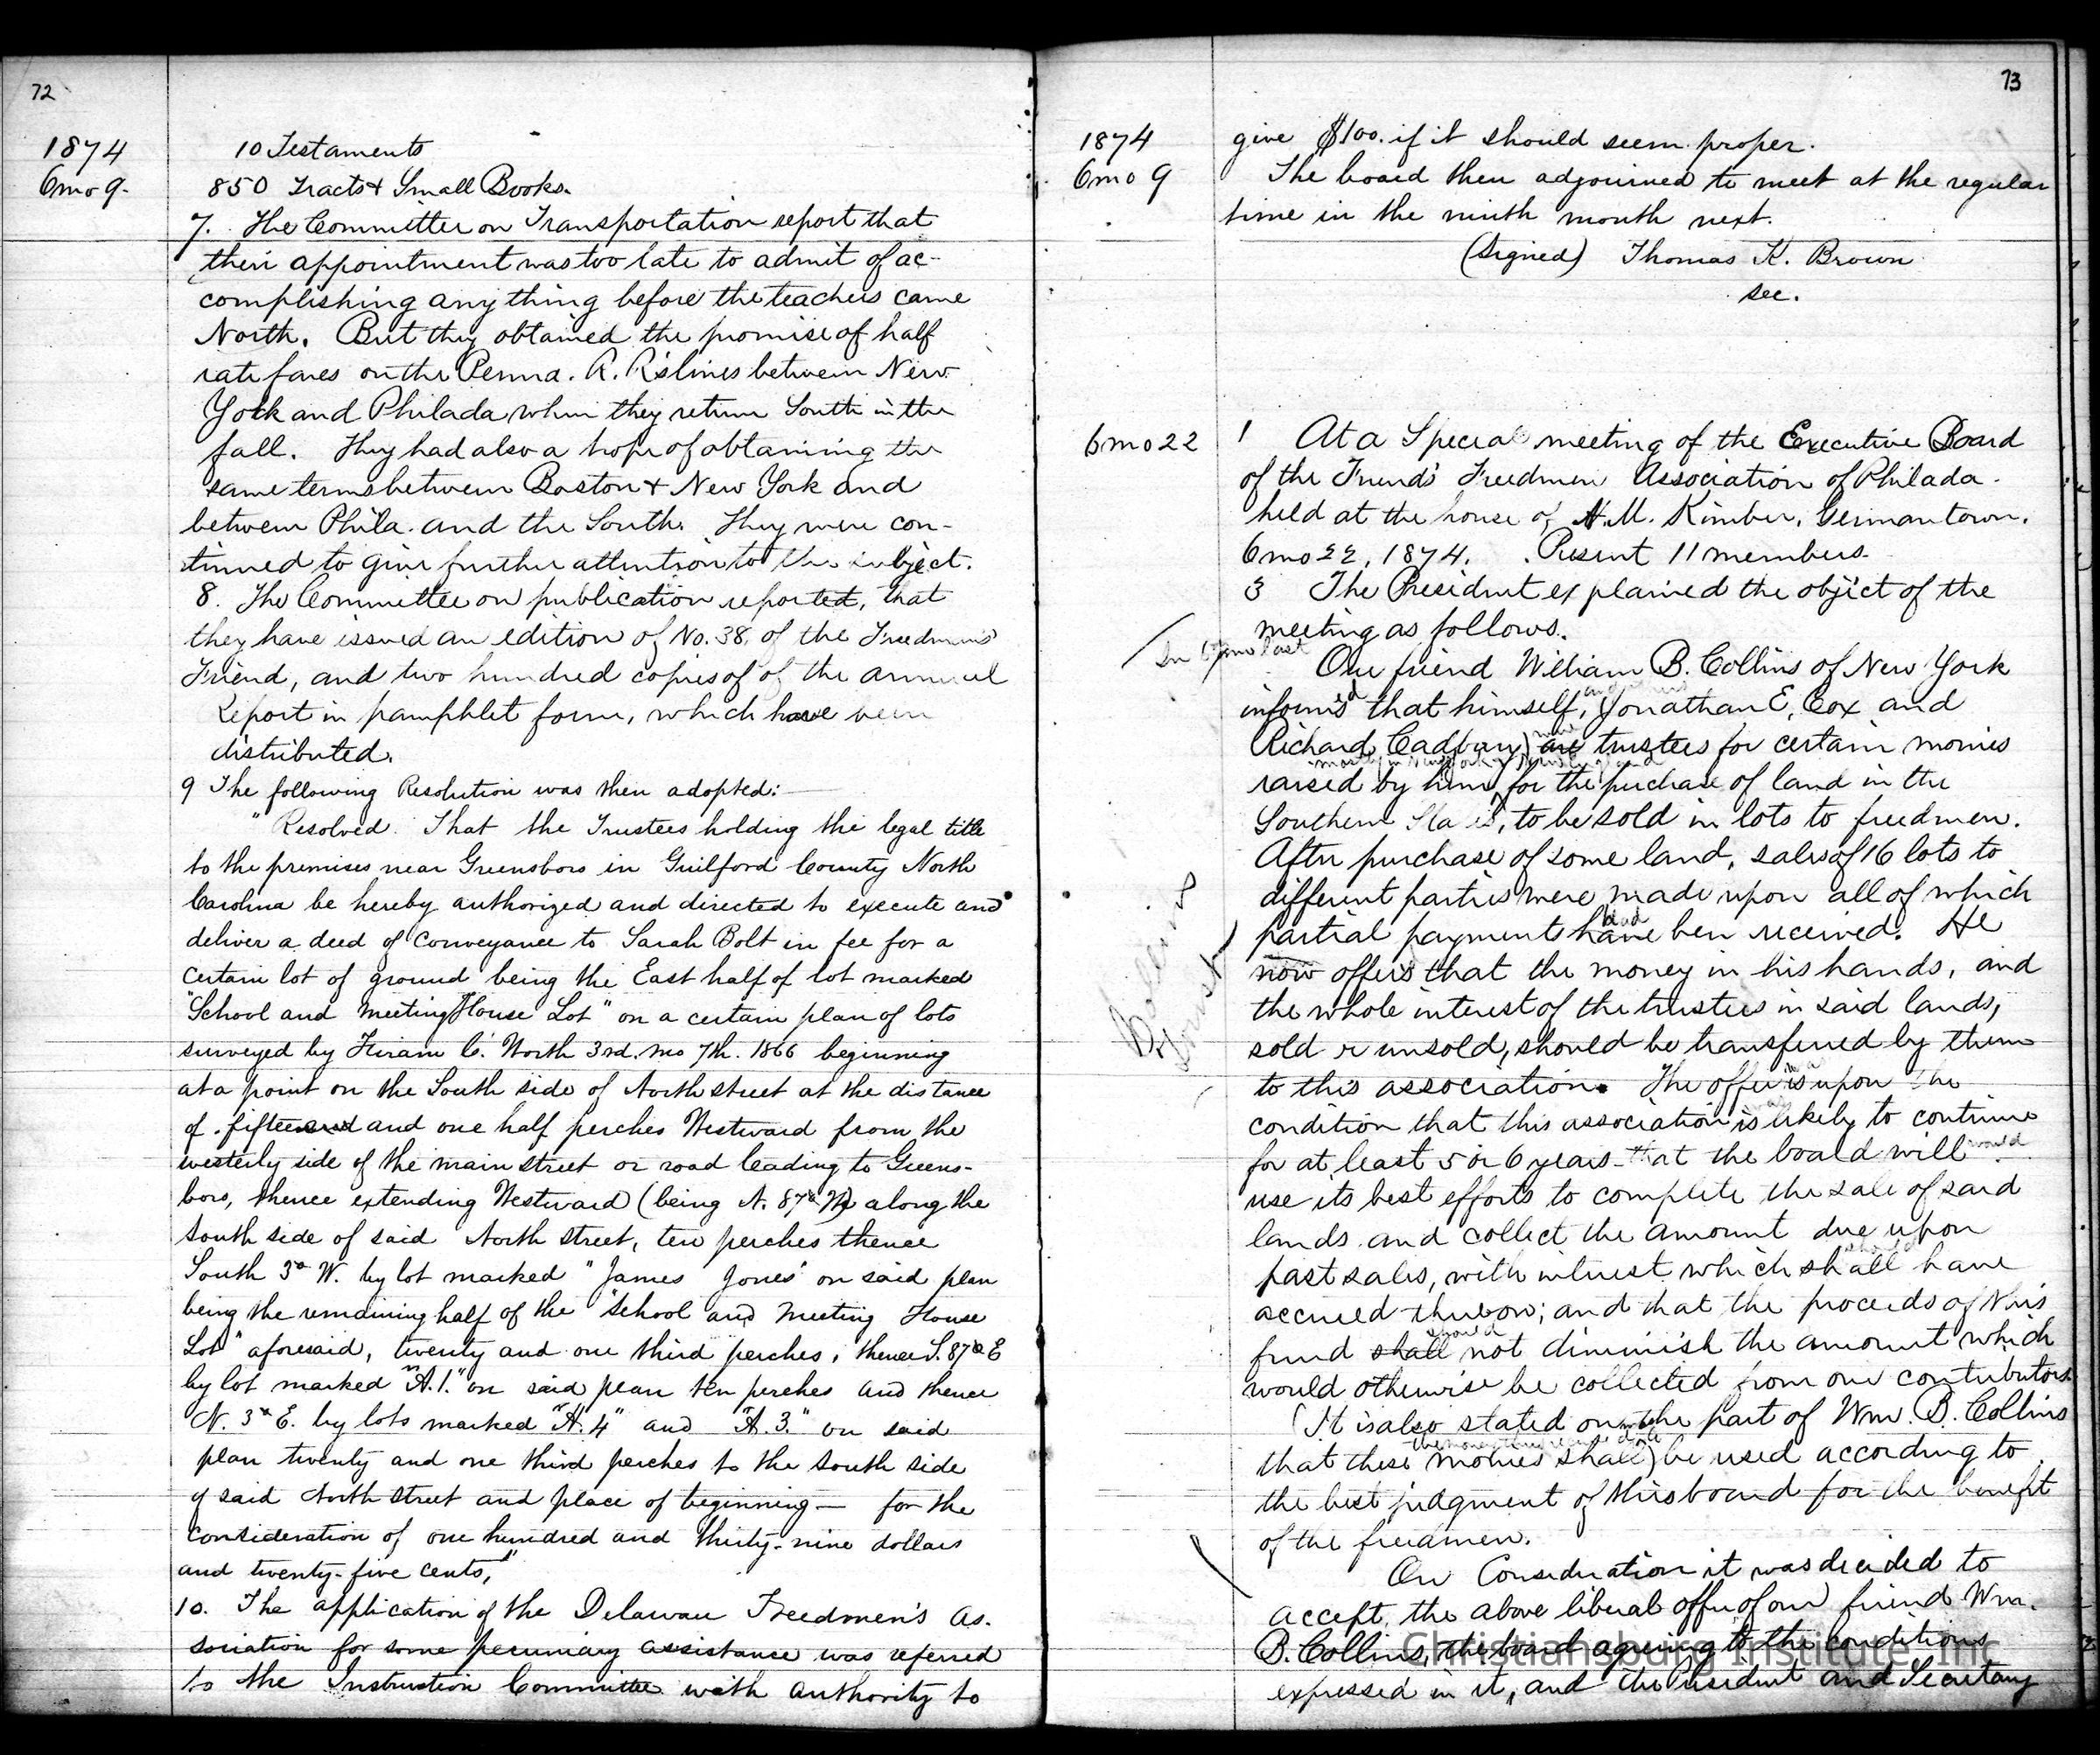 72
1874
6mo 9.
10 Testaments
850 Tracts & Small Books.
7. The Committee on Transportation report that
their appointment was too late to admit of ac-
complishing anything before the teachers came
North. But they obtained the promise of half
rate fares on the Penna. R. R's lines between New
York and Philada when they return South in the
fall. They had also a hope of obtaining the
same terms between Boston & New York and
between Phila. and the South. They were con-
tinued to give further attention to the subject.
8. The Committee on publication reported, that
they have issued an edition of No. 38, of the Freedmen's
Friend, and two hundred copies of of the annual
Report in pamphlet form, which have been
distributed.
9 The following Resolution was then adopted:—
"Resolved. That the Trustees holding the legal title
to the premises near Greensboro in Guilford County North
Carolina be hereby authorized and directed to execute and
deliver a deed of conveyance to Sarah Bolt in fee for a
certain lot of ground being the East half of lot marked
"School and Meeting House Lot" on a certain plan of lots
surveyed by Hiram C. Worth 3rd. mo 7th. 1866 beginning
at a point on the South side of North street at the distance
of fifteen and and one half perches Westward from the
westerly side of the main street or road leading to Greens-
boro, thence extending Westward (being N. 87° W) along the
South side of said North street, ten perches thence
South 3° W. by lot marked "James Jones" on said plan
being the remaining half of the "School and Meeting House
Lot" aforesaid, twenty and one third perches, thence S. 87° E
by lot marked "A. 1." on said plan ten perches and thence
N. 3° E. by lots marked "A. 4" and "A. 3." on said
plan twenty and one third perches to the South side
of said North street and place of beginning — for the
consideration of one hundred and thirty-nine dollars
and twenty-five cents,"
10. The application of the Delaware Freedmen's As-
sociation for some pecuniary assistance was referred
to the Instruction Committee with authority to
73
1874
6mo 9
give $100. if it should seem proper.
The board then adjourned to meet at the regular
time in the ninth month next.
(Signed) Thomas K. Brown
sec.
6mo 22
1 At a Special meeting of the Executive Board
of the Friends' Freedmen Association of Philada.
held at the house of N. M. Kimber, Germantown.
6mo 22, 1874. Present 11 members.
3 The President explained the object of the
meeting as follows.
In 6 mo last
Our friend William B. Collins of New York
informs d that himself, Jonathan E. Cox and
Richard Cadbury) are trustees for certain monies
raised by him for the purchase of land in the
Southern States, to be sold in lots to freedmen.
After purchase of some land, sales of 16 lots to
different parties were made upon all of which
partial payments have had been received. He
now offers that the money in his hands, and
the whole interest of the trustees in said lands,
sold or unsold, should be transferred by them
to this association. The offer is upon the
condition that this association is likely to continue
for at least 5 or 6 years - that the board will would
use its best efforts to complete the sale of said
lands and collect the amount due upon
past sales, with interest which shall should have
accrued thereon; and that the proceeds of this
fund shall should not diminish the amount which
would otherwise be collected from our contributors.
(It is also stated on the part of Wm. B. Collins
that these monies shall) be used according to
the best judgment of this board for the benefit
of the freedmen.
Collins
Trust
On Consideration it was decided to
accept the above liberal offer of our friend Wm.
B. Collins, the board agreeing to the conditions
expressed in it, and the President and Secretary
Christiansburg Institute, Inc